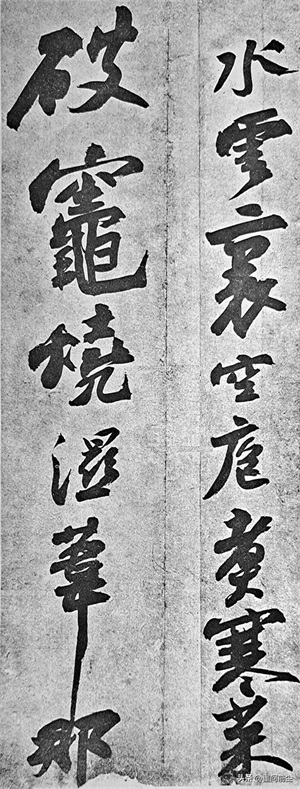 水雲裏空庖煮寒菜
破竈燒濕葦那
头条